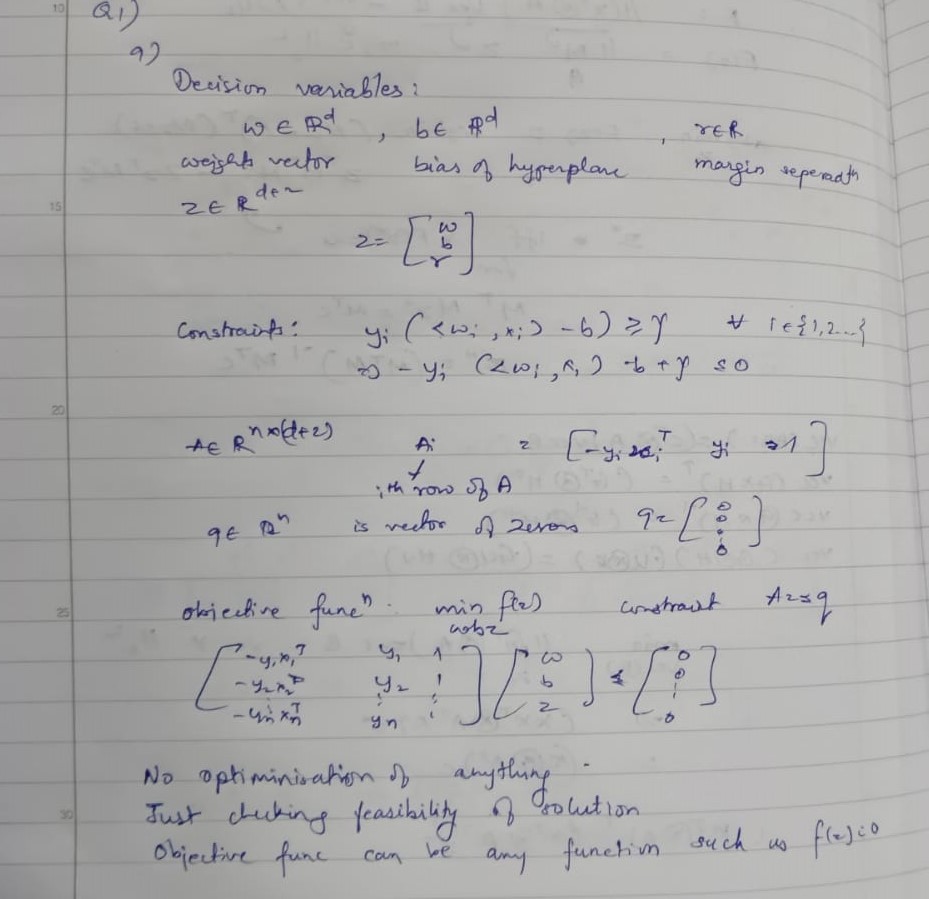 10
Q1)
a)
Decision variables:
w ∈ ℝ^d , b ∈ ℝ^d , r ∈ R
weights vector bias of hyperplane margin
z ∈ R^{d+2}
15
z = [w b r]
Constraints: y_i (<w_i, x_i> - b) ≥ γ ∀ i ∈ {1,2...}
⇒ - y_i (<w_i, x_i) - b + γ ≤ 0
20
A ∈ R^{n×(d+2)} A_i = [-y_i x_i^T y_i 1]
ith row of A
q ∈ ℝ^n is vector of zeros q = [0 0 : 0]
25
objective func^n. min f(z) constraint Az ≤ q
[-y_1 x_1^T y_1 1] [w] ≤ [0]
[-y_2 x_2^T y_2 :] [b] [0]
[-y_n x_n^T y_n :] [z] [0]
No optiminisation of anything.
Just checking feasibility of solution
30
Objective func can be any function such as f(z)=0